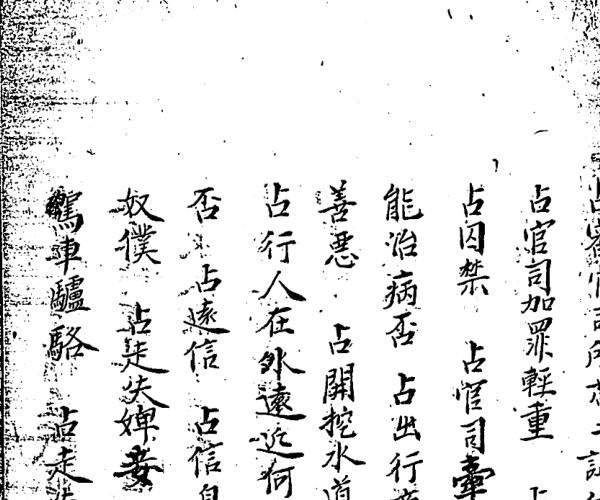 占官司加罪輕重
占囚禁 占官司牽
能治病否 占出行
善惡 占開挖水道
占行人在外遠近何
否 占遠信 占信息
奴僕 占走失婢妾
車驢駱 占走